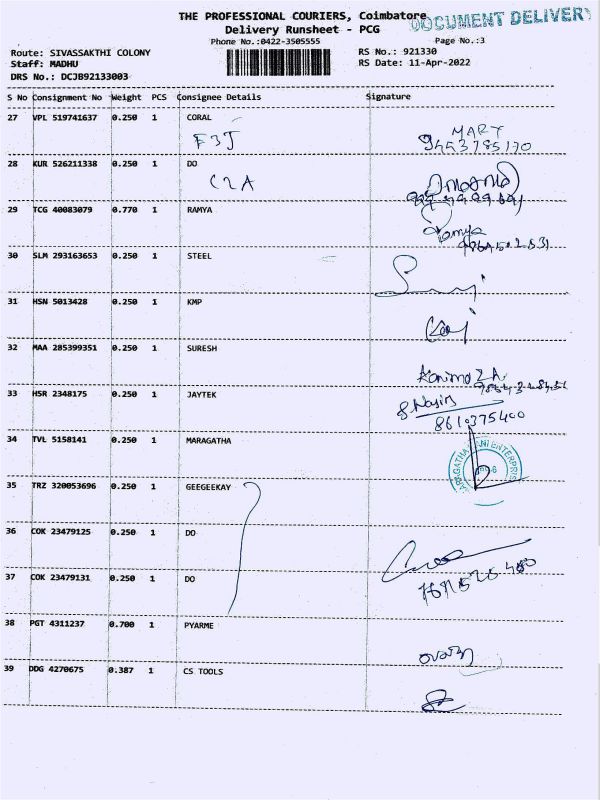 THE PROFESSIONAL COURIERS, Coimbatore
DOCUMENT DELIVERY
Delivery Runsheet - PCG
Phone No.:0422-3505555
Page No.:3
Route: SIVASSAKTHI COLONY
RS No.: 921330
Staff: MADHU
RS Date: 11-Apr-2022
DRS No.: DCJB92133003
S No Consignment No Weight PCS Consignee Details Signature
27 VPL 519741637 0.250 1 CORAL
F3J MARY
9453785170
28 KUR 526211338 0.250 1 DO
C2A
29 TCG 40083079 0.770 1 RAMYA
Ramya
30 SLM 293163653 0.250 1 STEEL
31 HSN 5013428 0.250 1 KMP
32 MAA 285399351 0.250 1 SURESH
33 HSR 2348175 0.250 1 JAYTEK
8610375400
34 TVL 5158141 0.250 1 MARAGATHA
35 TRZ 320053696 0.250 1 GEEGEEKAY
36 COK 23479125 0.250 1 DO
37 COK 23479131 0.250 1 DO
38 PGT 4311237 0.700 1 PYARME
39 DDG 4270675 0.387 1 CS TOOLS